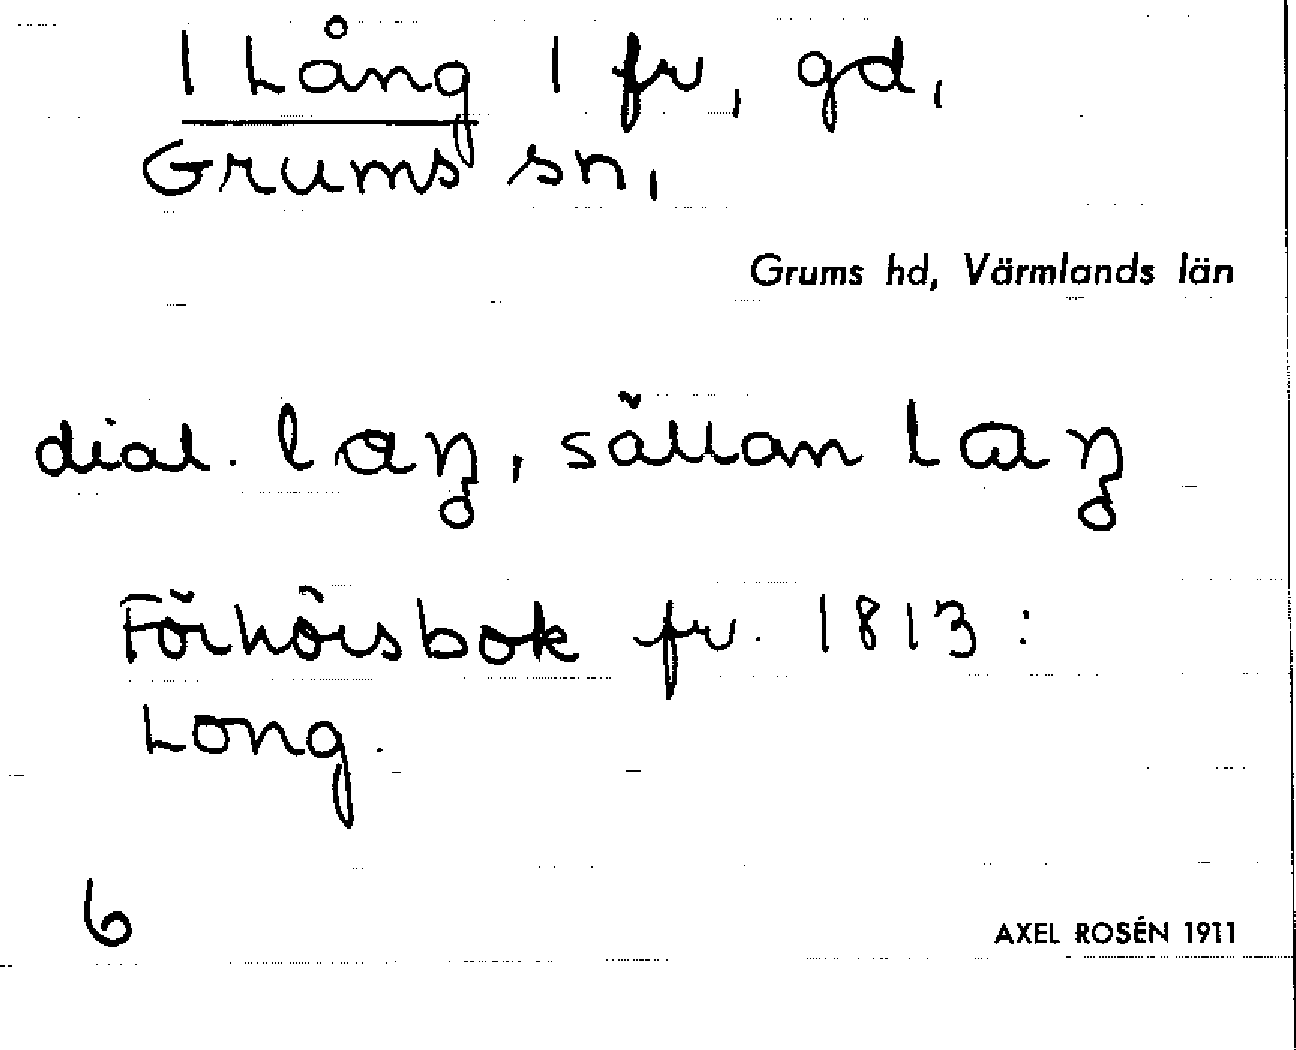 1 Lång 1 fr, gd,
Grums sn,
Grums hd, Värmlands län
dial. laŋ, sällan laŋ
Förhörsbok fr. 1813:
Long.
6
AXEL ROSÉN 1911